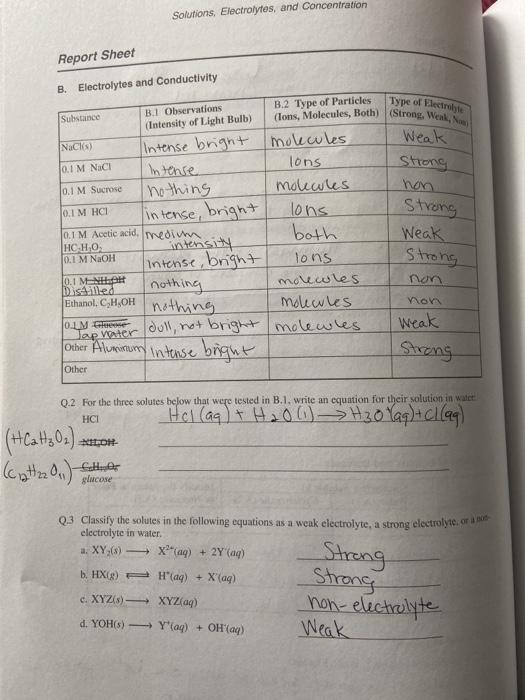 Solutions, Electrolytes, and Concentration
Report Sheet
B. Electrolytes and Conductivity
Substance | B.1 Observations (Intensity of Light Bulb) | B.2 Type of Particles (Ions, Molecules, Both) | Type of Electrolyte (Strong, Weak, Non)
NaCl(s) | Intense bright | molecules | Weak
0.1 M NaCl | Intense | Ions | Strong
0.1 M Sucrose | nothing | molecules | non
0.1 M HCl | intense, bright | Ions | Strong
0.1 M Acetic acid, HC₂H₃O₂ | medium intensity | both | Weak
0.1 M NaOH | Intense, bright | Ions | Strong
0.1 M NH₄OH Distilled | nothing | molecules | non
Ethanol, C₂H₅OH | nothing | molecules | non
0.1 M Glucose Tap water | dull, not bright | molecules | Weak
Other Aluminum | Intense bright | Strong
Other
Q.2 For the three solutes below that were tested in B.1, write an equation for their solution in water.
HCl Hcl(aq) + H2O(l) → H3O⁺(aq) + cl(aq)
(HC2H3O2) NH₄OH
(C12H22O11) glucose
Q.3 Classify the solutes in the following equations as a weak electrolyte, a strong electrolyte, or a non-
electrolyte in water.
a. XY₂(s) ⟶ X²⁺(aq) + 2Y⁻(aq) Strong
b. HX(g) ⇌ H⁺(aq) + X⁻(aq) Strong
c. XYZ(s) ⟶ XYZ(aq) non-electrolyte
d. YOH(s) ⟶ Y⁺(aq) + OH⁻(aq) Weak